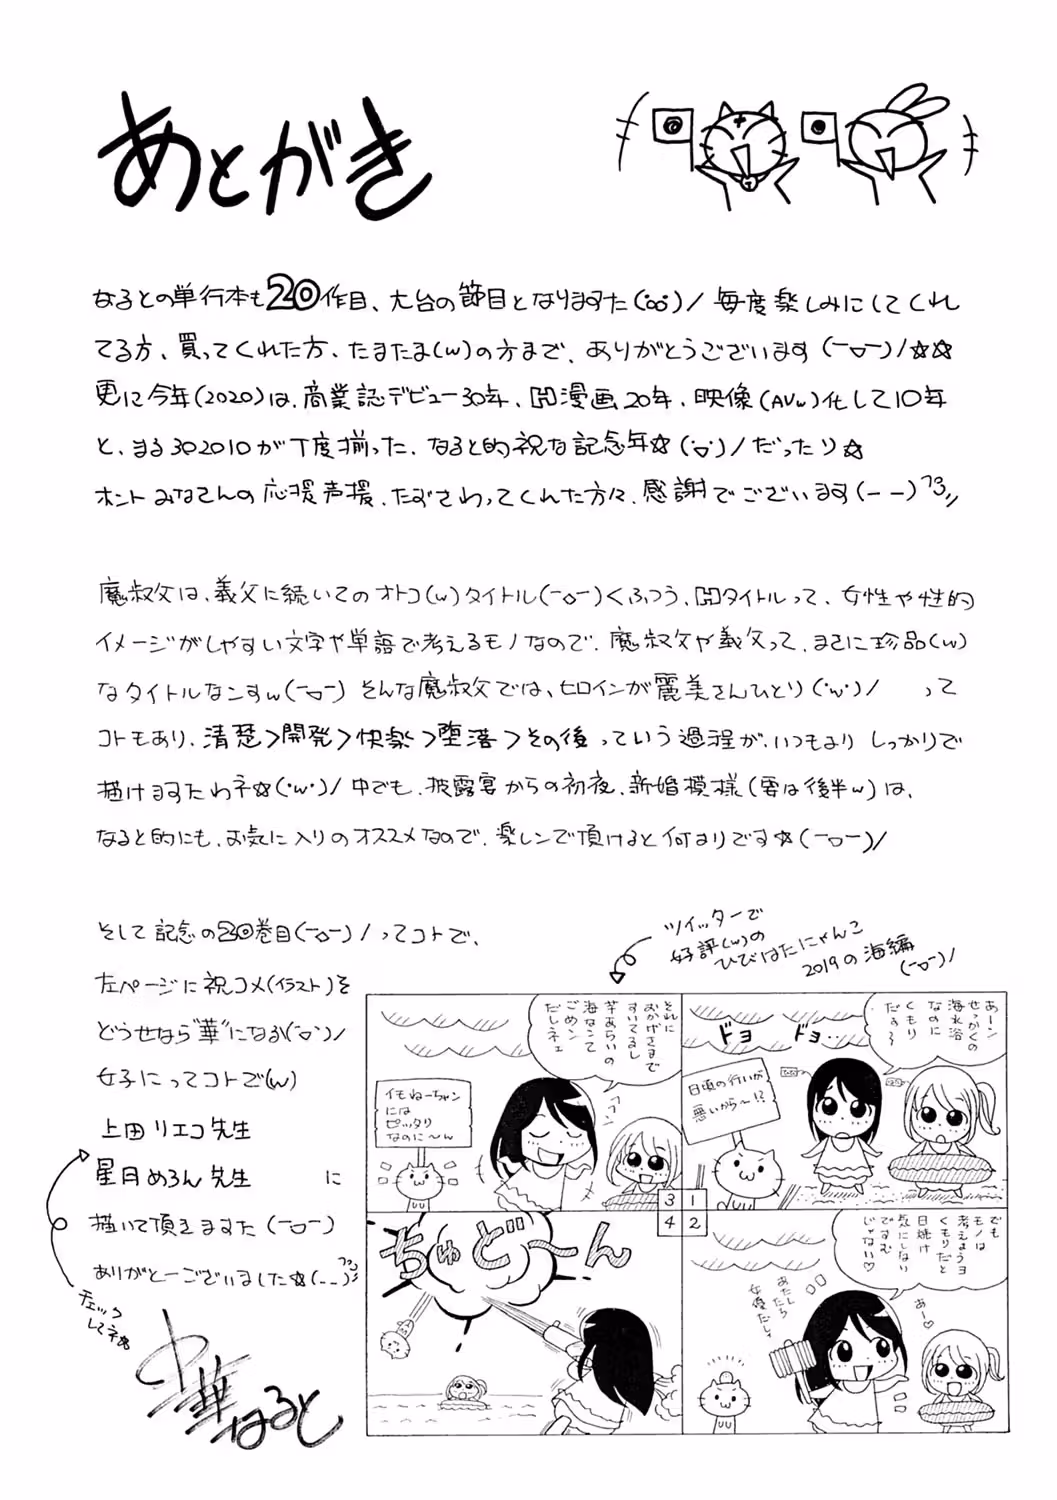 あとがき
なるとの単行本も20作目、大台の節目となりますた(°ω°)ノ毎度楽しみにしてくれ
てる方、買ってくれた方、たまたま(w)の方まで、ありがとうございます(ー▽ー)ノ☆☆
更に今年(2020)は、商業誌デビュー30年、H漫画20年、映像(AVw)化して10年
と、まる302010が丁度揃った、なると的祝な記念年☆(・▽・)ノだったり☆
ホントみなさんの応援声援、たずさわってくれた方々、感謝でございます(ーー)フヨ〃
魔叔父は、義父に続いてのオトコ(w)タイトル(ー◇ー)くふつう、Hタイトルって、女性や性的
イメージがしやすい文字や単語で考えるモノなので、魔叔父や義父って、まさに珍品(w)
なタイトルなンすw(ー▽ー) そんな魔叔父では、ヒロインが麗美さんひとり(・w・)ノ って
コトもあり、清楚>開発>快楽>堕落>その後っていう過程が、いつもよりしっかりで
描けますたわネ☆(・w・)ノ 中でも、披露宴からの初夜、新婚模様(要は後半w)は、
なると的にも、お気に入りのオススメなので、楽しンで頂けると何よりです☆(ー▽ー)ノ
そして記念の20巻目(ー◇ー)ノってコトで、
左ページに祝コメ(イラスト)を
どうせなら"華"になるか(・▽・)ノ
女子にってコトで(w)
上田リエコ先生
星月めろん先生 に
描いて頂きますた(ー▽ー)
ありがとーございました☆(--)フヨ〃
チェック
してネ☆
中華なると
ツイッターで
好評(w)の
ひびはたにゃんこ
2019の海編
(ー▽ー)ノ
1
あーン
せっかくの
海水浴
なのに
くもり
だぁ〜
ドョ ドョ…
日頃の行いが
悪いから〜!?
2
でも
モノは
考えようヨ
くもりだと
日焼け
気にしない
ですむ
じゃない♡
あたし
たち
女優だしィ
あー♡
3
それに
おかげさまで
すいてるし
芋あらいの
海なンて
ごめン
だしネェ
フフン
イモねーちゃン
には
ピッタリ
なのに〜ん
4
ちゅど〜ん